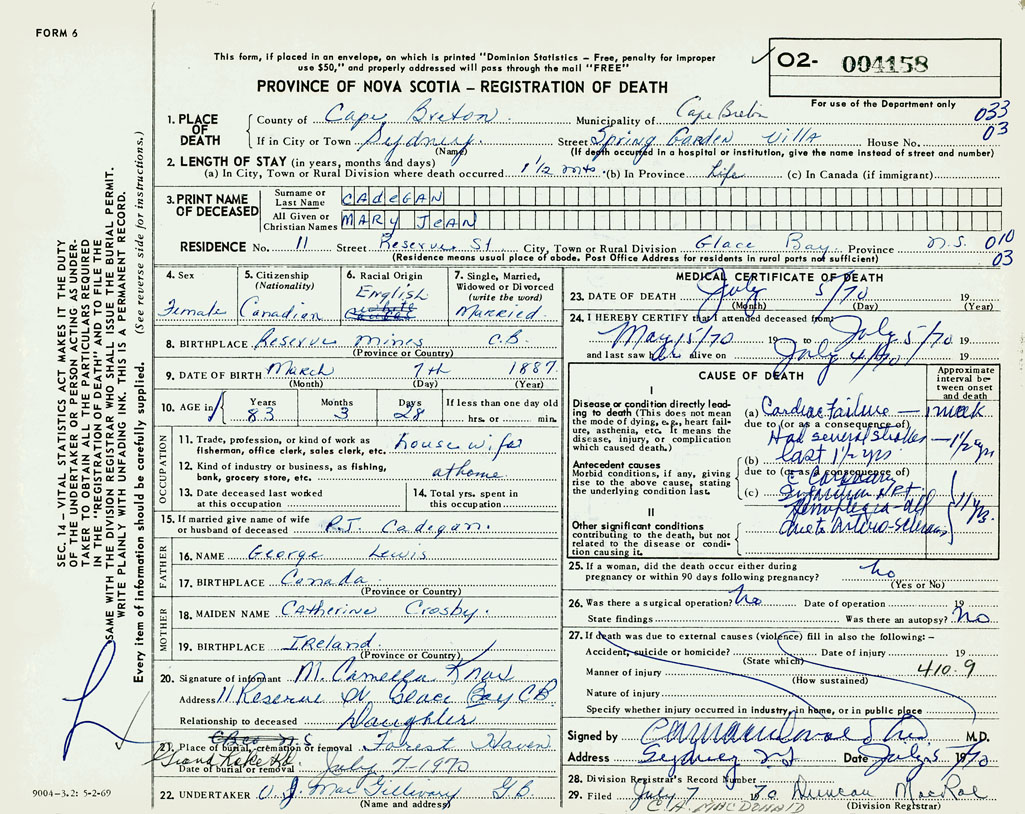 FORM 6
This form, if placed in an envelope, on which is printed "Dominion Statistics – Free, penalty for improper
use $50," and properly addressed will pass through the mail "FREE"
PROVINCE OF NOVA SCOTIA – REGISTRATION OF DEATH
O2- 004158
For use of the Department only
033
03
1. PLACE OF DEATH
County of Cape Breton Municipality of Cape Breton
If in City or Town Sydney Street Spring Garden Villa House No.
(Name) (If death occurred in a hospital or institution, give the name instead of street and number)
2. LENGTH OF STAY (in years, months and days)
(a) In City, Town or Rural Division where death occurred 1 1/2 mts. (b) In Province Life (c) In Canada (if immigrant)
3. PRINT NAME OF DECEASED
Surname or Last Name CADEGAN
All Given or Christian Names MARY JEAN
RESIDENCE No. 11 Street Reserve St City, Town or Rural Division Glace Bay Province N.S. 010
03
(Residence means usual place of abode. Post Office Address for residents in rural parts not sufficient)
4. Sex
Female
5. Citizenship
(Nationality)
Canadian
6. Racial Origin
English
7. Single, Married,
Widowed or Divorced
(write the word)
Married
8. BIRTHPLACE Reserve Mines C.B.
(Province or Country)
9. DATE OF BIRTH March 7th 1887
(Month) (Day) (Year)
10. AGE in
Years 83
Months 3
Days 28
If less than one day old
hrs. or min.
OCCUPATION
11. Trade, profession, or kind of work as
fisherman, office clerk, sales clerk, etc. housewife
12. Kind of industry or business, as fishing,
bank, grocery store, etc. at home
13. Date deceased last worked
at this occupation
14. Total yrs. spent in
this occupation
15. If married give name of wife
or husband of deceased R.J. Cadegan.
FATHER
16. NAME George Lewis
17. BIRTHPLACE Canada
(Province or Country)
MOTHER
18. MAIDEN NAME Catherine Crosby.
19. BIRTHPLACE Ireland.
(Province or Country)
20. Signature of informant M. Camella Knox
Address 11 Reserve St Glace Bay C.B.
Relationship to deceased Daughter
21. Place of burial, cremation or removal Forest Haven
Grand Lake Rd.
Date of burial or removal July 7-1970
22. UNDERTAKER V. J. MacGillivary G.B.
(Name and address)
MEDICAL CERTIFICATE OF DEATH
23. DATE OF DEATH July 5/70 19
(Month) (Day) (Year)
24. I HEREBY CERTIFY that I attended deceased from:
May 15/70 19 to July 5/70 19
and last saw her alive on July 4/70 19
CAUSE OF DEATH
Approximate
interval be-
tween onset
and death
I
Disease or condition directly lead-
ing to death (This does not mean
the mode of dying, e.g., heart fail-
ure, asthenia, etc. It means the
disease, injury, or complication
which caused death.)
(a) Cardiac Failure – 1 week
due to (or as a consequence of)
Had several strokes – 1 1/2 yrs
(b) last 1 1/2 yrs
Antecedent causes
Morbid conditions, if any, giving
rise to the above cause, stating
the underlying condition last.
due to (or as a consequence of)
(c)
II
Other significant conditions
contributing to the death, but not
related to the disease or condi-
tion causing it.
due to Arterio-Sclerosis
25. If a woman, did the death occur either during
pregnancy or within 90 days following pregnancy? no
(Yes or No)
26. Was there a surgical operation? no Date of operation 19
State findings Was there an autopsy? no
27. If death was due to external causes (violence) fill in also the following: –
Accident, suicide or homicide? Date of injury 19
(State which)
Manner of injury 410.9
(How sustained)
Nature of injury
Specify whether injury occurred in industry, in home, or in public place
Signed by M.D.
Address Sydney N.S. Date July 5 1970
28. Division Registrar's Record Number
29. Filed July 7 1970 Duncan MacRae
C. A. MACDONALD (Division Registrar)
SEC. 14 – VITAL STATISTICS ACT MAKES IT THE DUTY
OF THE UNDERTAKER OR PERSON ACTING AS UNDER-
TAKER TO OBTAIN ALL THE PARTICULARS REQUIRED
IN THE "REGISTRATION OF DEATH" AND TO FILE THE
SAME WITH THE DIVISION REGISTRAR WHO SHALL ISSUE THE BURIAL PERMIT.
WRITE PLAINLY WITH UNFADING INK. THIS IS A PERMANENT RECORD.
Every item of Information should be carefully supplied. (See reverse side for instructions.)
9004-3.2: 5-2-69